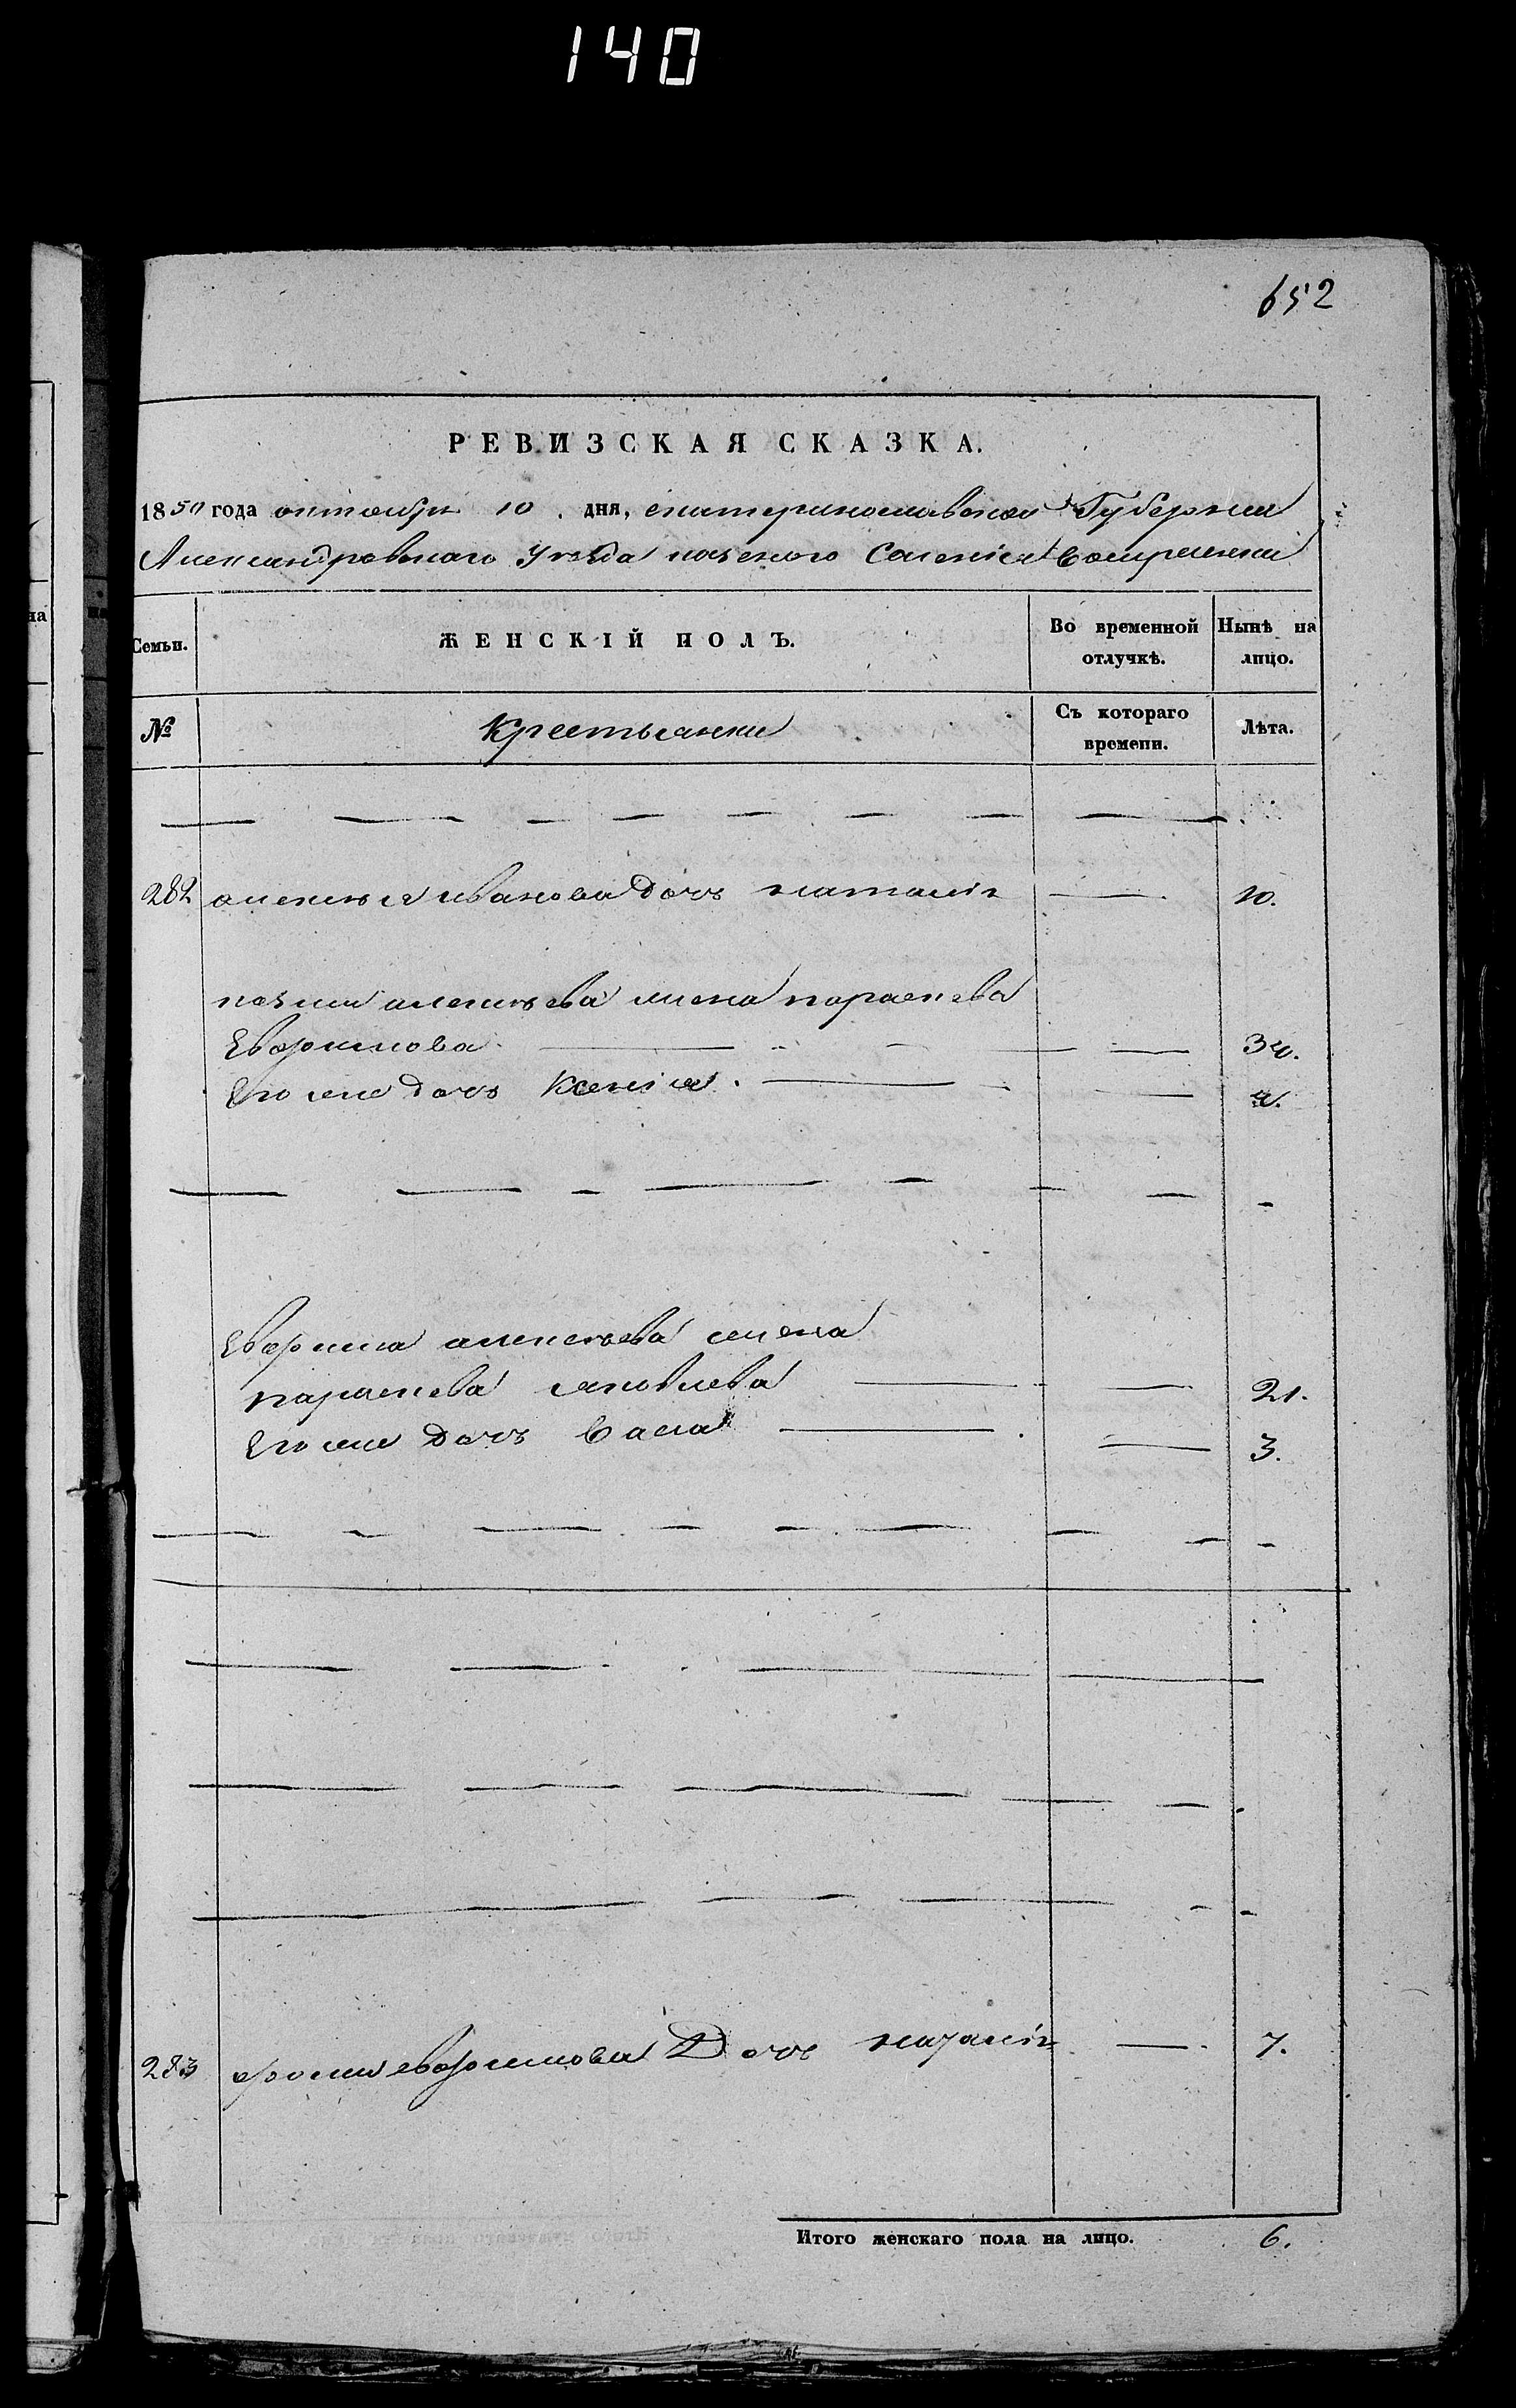 140
652
РЕВИЗСКАЯ СКАЗКА.
1850 года октября 10. дня, екатеринославской Губернии
Александровскаго Уезда казеного Селения
Семьи. ЖЕНСКІЙ ПОЛЪ. Во временной отлучкѣ. Нынѣ на лицо.
№ Крестьянки Съ котораго времени. Лѣта.
282 алексея иванова дочь наталія — 10.
козми алексѣева жена парасковья
Евфимова — 34.
Его же дочь Ксенія. — 4.
Евфима алексѣева жена
яковлева — 21.
Его же дочь Васа — 3.
283 фоми евфимова Дочь наталія — 7.
Итого женскаго пола на лицо. 6.
на